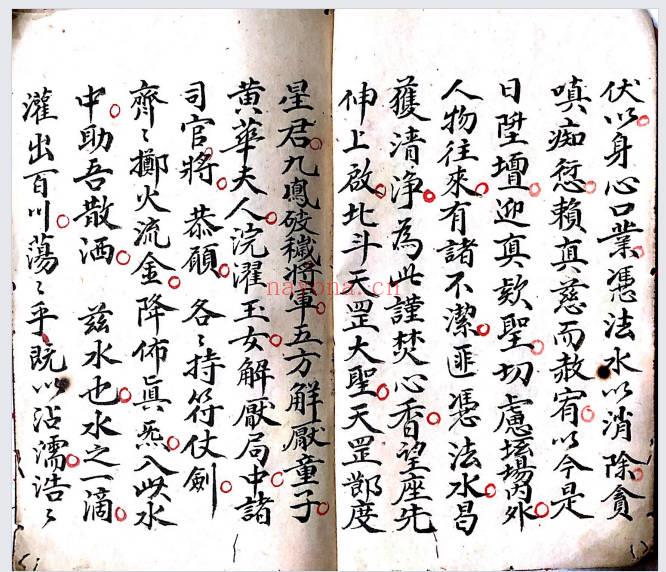 伏以身心口業憑法水以消除貪
嗔痴愆賴真慈而赦宥以今是
日陞壇迎真欵聖切慮壇場內外
人物往來有諸不潔匪憑法水曷
獲清净為此謹焚心香望座先
伸上啟北斗天罡大聖天罡酆度
星君九鳳破穢將軍五方解厭童子
黃華夫人浣濯玉女解厭局中諸
司官將 恭願 各〻持符仗劍
齊〻擲火流金降佈真炁入此水
中助吾散洒 兹水也水之一滴
灌出百川蕩〻乎既以沾濡浩〻
nayona.cn